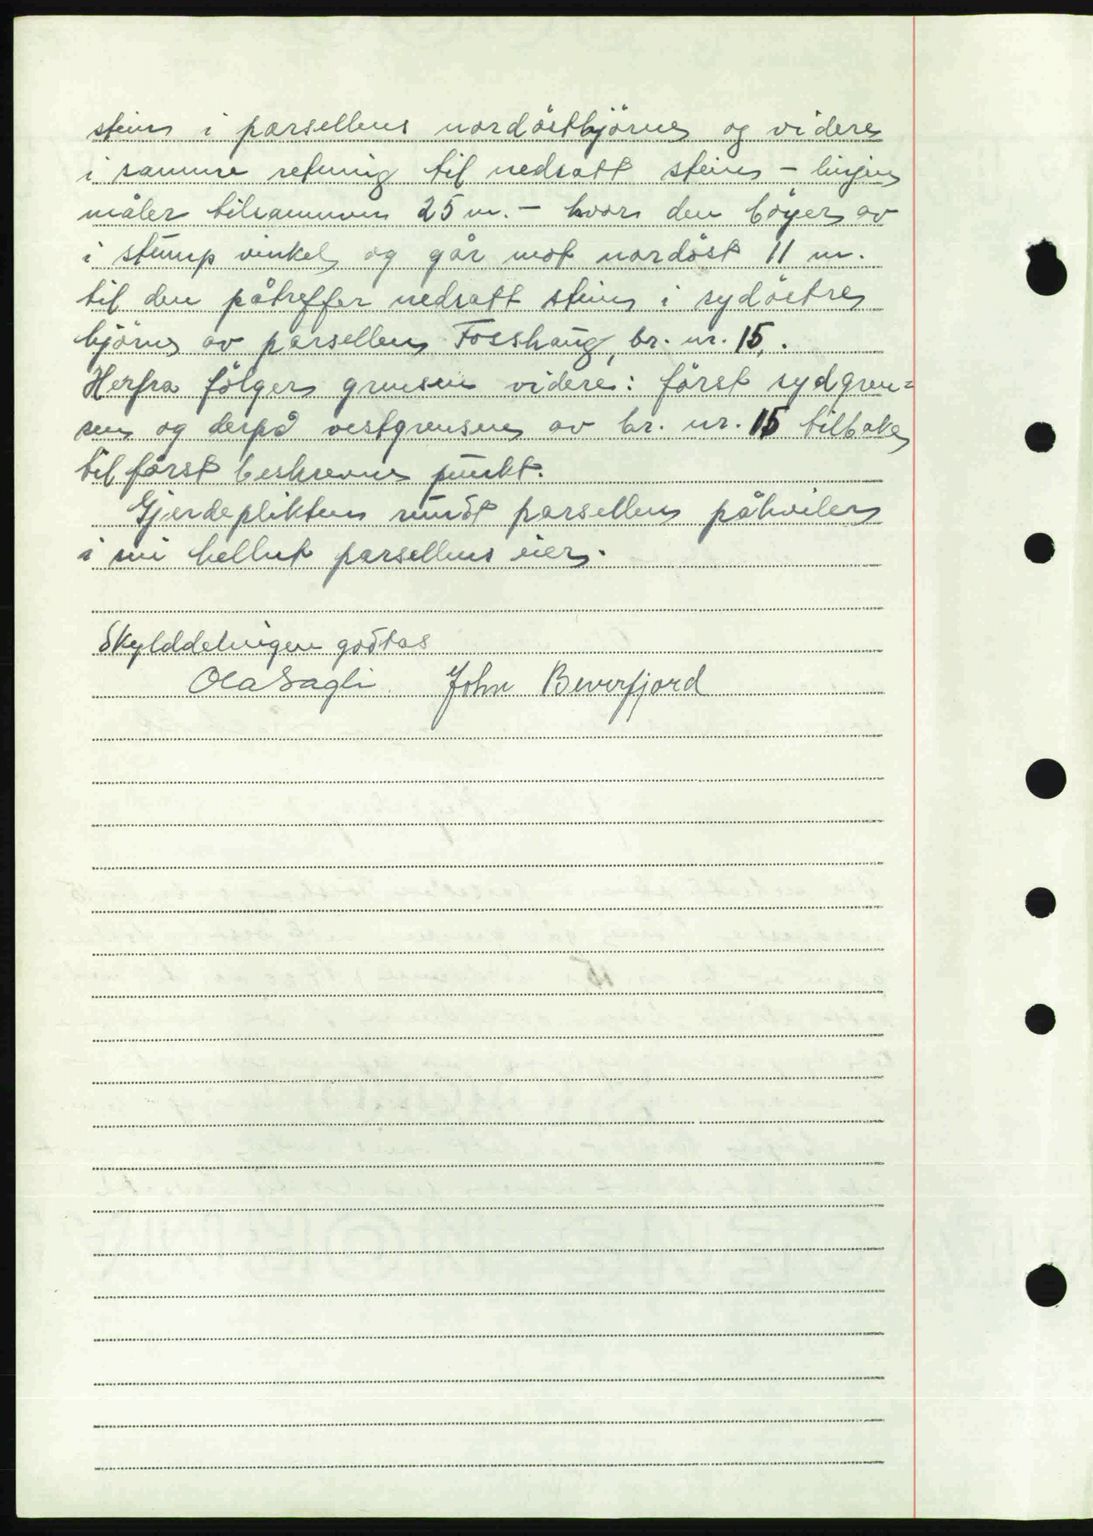 stein i parsellens nordösthjörne og videre
i samme retning til nedsatt stein – linjen
måler tilsammen 25 m. – hvor den böyer av
i stump vinkel og går mot nordöst 11 m.
til den påtreffer nedsatt stein i sydöstre
hjörne av parsellen Fosshaug, br. nr. 15.
Herfra fölger grensen videre: först sydgren=
sen og derpå vestgrensen av br. nr. 15 tilbake
til först beskrevne punkt.
Gjerdeplikten rundt parsellen påhviler
i sin helhet parsellens eier.
Skylddelingen godtas
Ola Sagli John Beverfjord